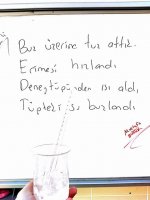 Buz üzerine tuz attık.
Erimesi hızlandı
Deney tüpünden ısı aldı,
Tüpteki su buzlandı